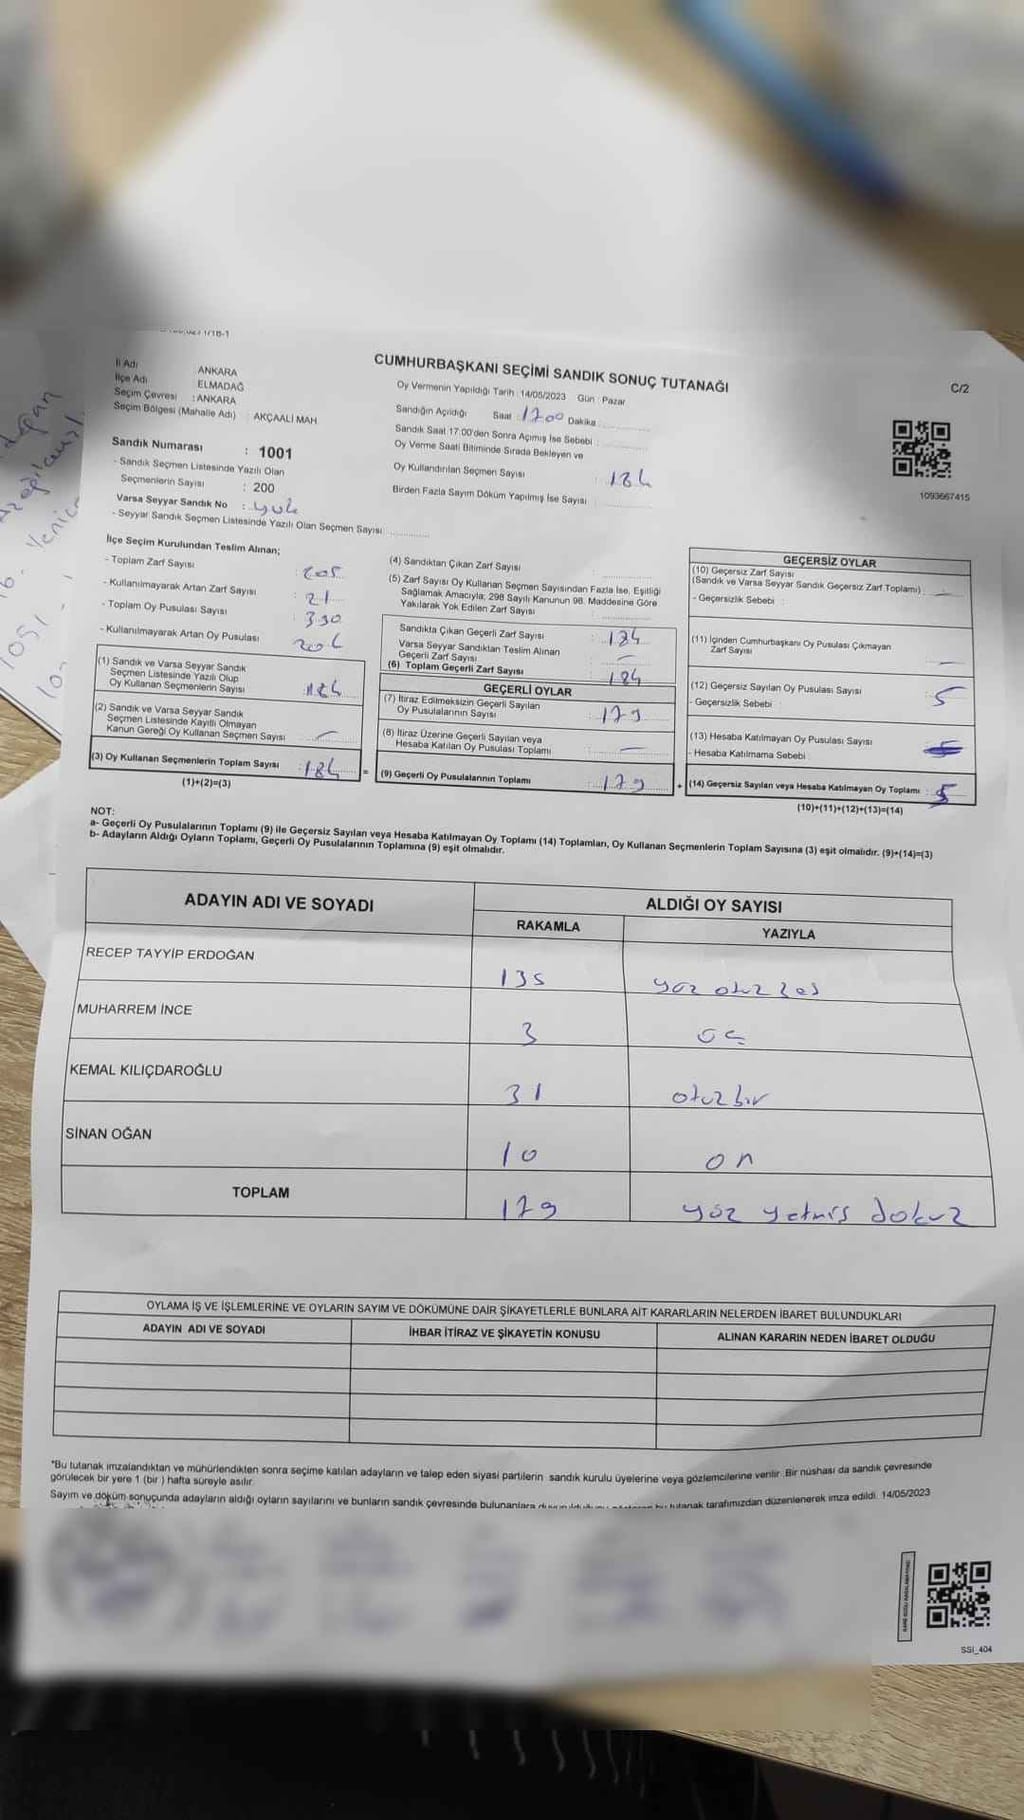 İl Adı ANKARA
İlçe Adı ELMADAĞ
Seçim Çevresi : ANKARA
Seçim Bölgesi (Mahalle Adı) : AKÇAALİ MAH
Sandık Numarası : 1001
- Sandık Seçmen Listesinde Yazılı Olan
Seçmenlerin Sayısı : 200
Varsa Seyyar Sandık No : yok
- Seyyar Sandık Seçmen Listesinde Yazılı Olan Seçmen Sayısı
CUMHURBAŞKANI SEÇİMİ SANDIK SONUÇ TUTANAĞI
Oy Vermenin Yapıldığı Tarih : 14/05/2023 Gün : Pazar
Sandığın Açıldığı Saat : 1700 Dakika
Sandık Saat 17:00'den Sonra Açımış İse Sebebi :
Oy Verme Saati Bitiminde Sırada Bekleyen ve
Oy Kullandırılan Seçmen Sayısı : 184
Birden Fazla Sayım Döküm Yapılmış İse Sayısı
C/2
1093667415
İlçe Seçim Kurulundan Teslim Alınan;
- Toplam Zarf Sayısı : 205
- Kullanılmayarak Artan Zarf Sayısı : 21
- Toplam Oy Pusulası Sayısı : 390
- Kullanılmayarak Artan Oy Pusulası 206
(1) Sandık ve Varsa Seyyar Sandık
Seçmen Listesinde Yazılı Olup
Oy Kullanan Seçmenlerin Sayısı : 184
(2) Sandık ve Varsa Seyyar Sandık
Seçmen Listesinde Kayıtlı Olmayan
Kanun Gereği Oy Kullanan Seçmen Sayısı : –
(3) Oy Kullanan Seçmenlerin Toplam Sayısı : 184 =
(1)+(2)=(3)
(4) Sandıktan Çıkan Zarf Sayısı
(5) Zarf Sayısı Oy Kullanan Seçmen Sayısından Fazla İse, Eşitliği
Sağlamak Amacıyla; 298 Sayılı Kanunun 98. Maddesine Göre
Yakılarak Yok Edilen Zarf Sayısı
Sandıkta Çıkan Geçerli Zarf Sayısı : 184
Varsa Seyyar Sandıktan Teslim Alınan
Geçerli Zarf Sayısı –
(6) Toplam Geçerli Zarf Sayısı : 184
GEÇERLİ OYLAR
(7) İtiraz Edilmeksizin Geçerli Sayılan
Oy Pusulalarının Sayısı : 179
(8) İtiraz Üzerine Geçerli Sayılan veya
Hesaba Katılan Oy Pusulası Toplamı : –
(9) Geçerli Oy Pusulalarının Toplamı : 179 +
GEÇERSİZ OYLAR
(10) Geçersiz Zarf Sayısı
(Sandık ve Varsa Seyyar Sandık Geçersiz Zarf Toplamı) : –
- Geçersizlik Sebebi :
(11) İçinden Cumhurbaşkanı Oy Pusulası Çıkmayan
Zarf Sayısı –
(12) Geçersiz Sayılan Oy Pusulası Sayısı : 5
- Geçersizlik Sebebi :
(13) Hesaba Katılmayan Oy Pusulası Sayısı
- Hesaba Katılmama Sebebi :
(14) Geçersiz Sayılan veya Hesaba Katılmayan Oy Toplamı : 5
(10)+(11)+(12)+(13)=(14)
NOT:
a- Geçerli Oy Pusulalarının Toplamı (9) ile Geçersiz Sayılan veya Hesaba Katılmayan Oy Toplamı (14) Toplamları, Oy Kullanan Seçmenlerin Toplam Sayısına (3) eşit olmalıdır. (9)+(14)=(3)
b- Adayların Aldığı Oyların Toplamı, Geçerli Oy Pusulalarının Toplamına (9) eşit olmalıdır.
ADAYIN ADI VE SOYADI ALDIĞI OY SAYISI
RAKAMLA YAZIYLA
RECEP TAYYİP ERDOĞAN 135 yüz otuz beş
MUHARREM İNCE 3 üç
KEMAL KILIÇDAROĞLU 31 otuz bir
SİNAN OĞAN 10 on
TOPLAM 179 yüz yetmiş dokuz
OYLAMA İŞ VE İŞLEMLERİNE VE OYLARIN SAYIM VE DÖKÜMÜNE DAİR ŞİKAYETLERLE BUNLARA AİT KARARLARIN NELERDEN İBARET BULUNDUKLARI
ADAYIN ADI VE SOYADI İHBAR İTİRAZ VE ŞİKAYETİN KONUSU ALINAN KARARIN NEDEN İBARET OLDUĞU
*Bu tutanak imzalandıktan ve mühürlendikten sonra seçime katılan adayların ve talep eden siyasi partilerin sandık kurulu üyelerine veya gözlemcilerine verilir. Bir nüshası da sandık çevresinde
görülecek bir yere 1 (bir) hafta süreyle asılır.
Sayım ve döküm sonuçunda adayların aldığı oyların sayılarını ve bunların sandık çevresinde bulunanlara bu tutanak tarafımızdan düzenlenerek imza edildi. 14/05/2023
SSI_404